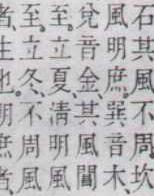 石其風不周。坎
風明庶。巽音木、
兌音金。其風閶
至。立夏、清明風
至。立冬、不周風
者、生也。明庶者、